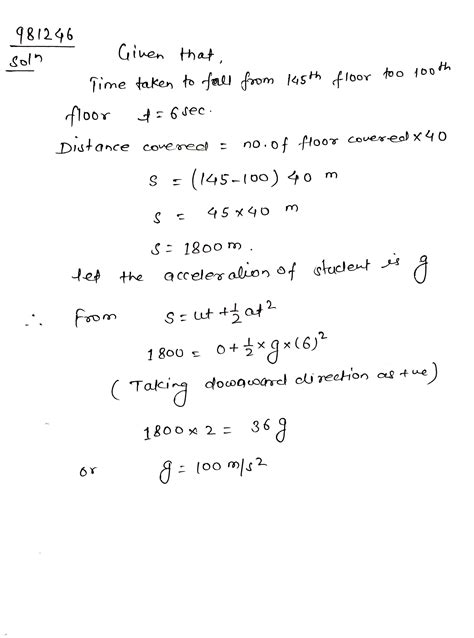 981246
Solⁿ
Given that,
Time taken to fall from 145th floor too 100th
floor t = 6 sec.
Distance covered = no. of floor covered × 40
S = (145-100) 40 m
S = 45 × 40 m
S = 1800 m.
let the acceleration of student is g
∴ from S = ut + ½ at²
1800 = 0 + ½ × g × (6)²
(Taking downward direction as +ve)
1800 × 2 = 36 g
or g = 100 m/s²